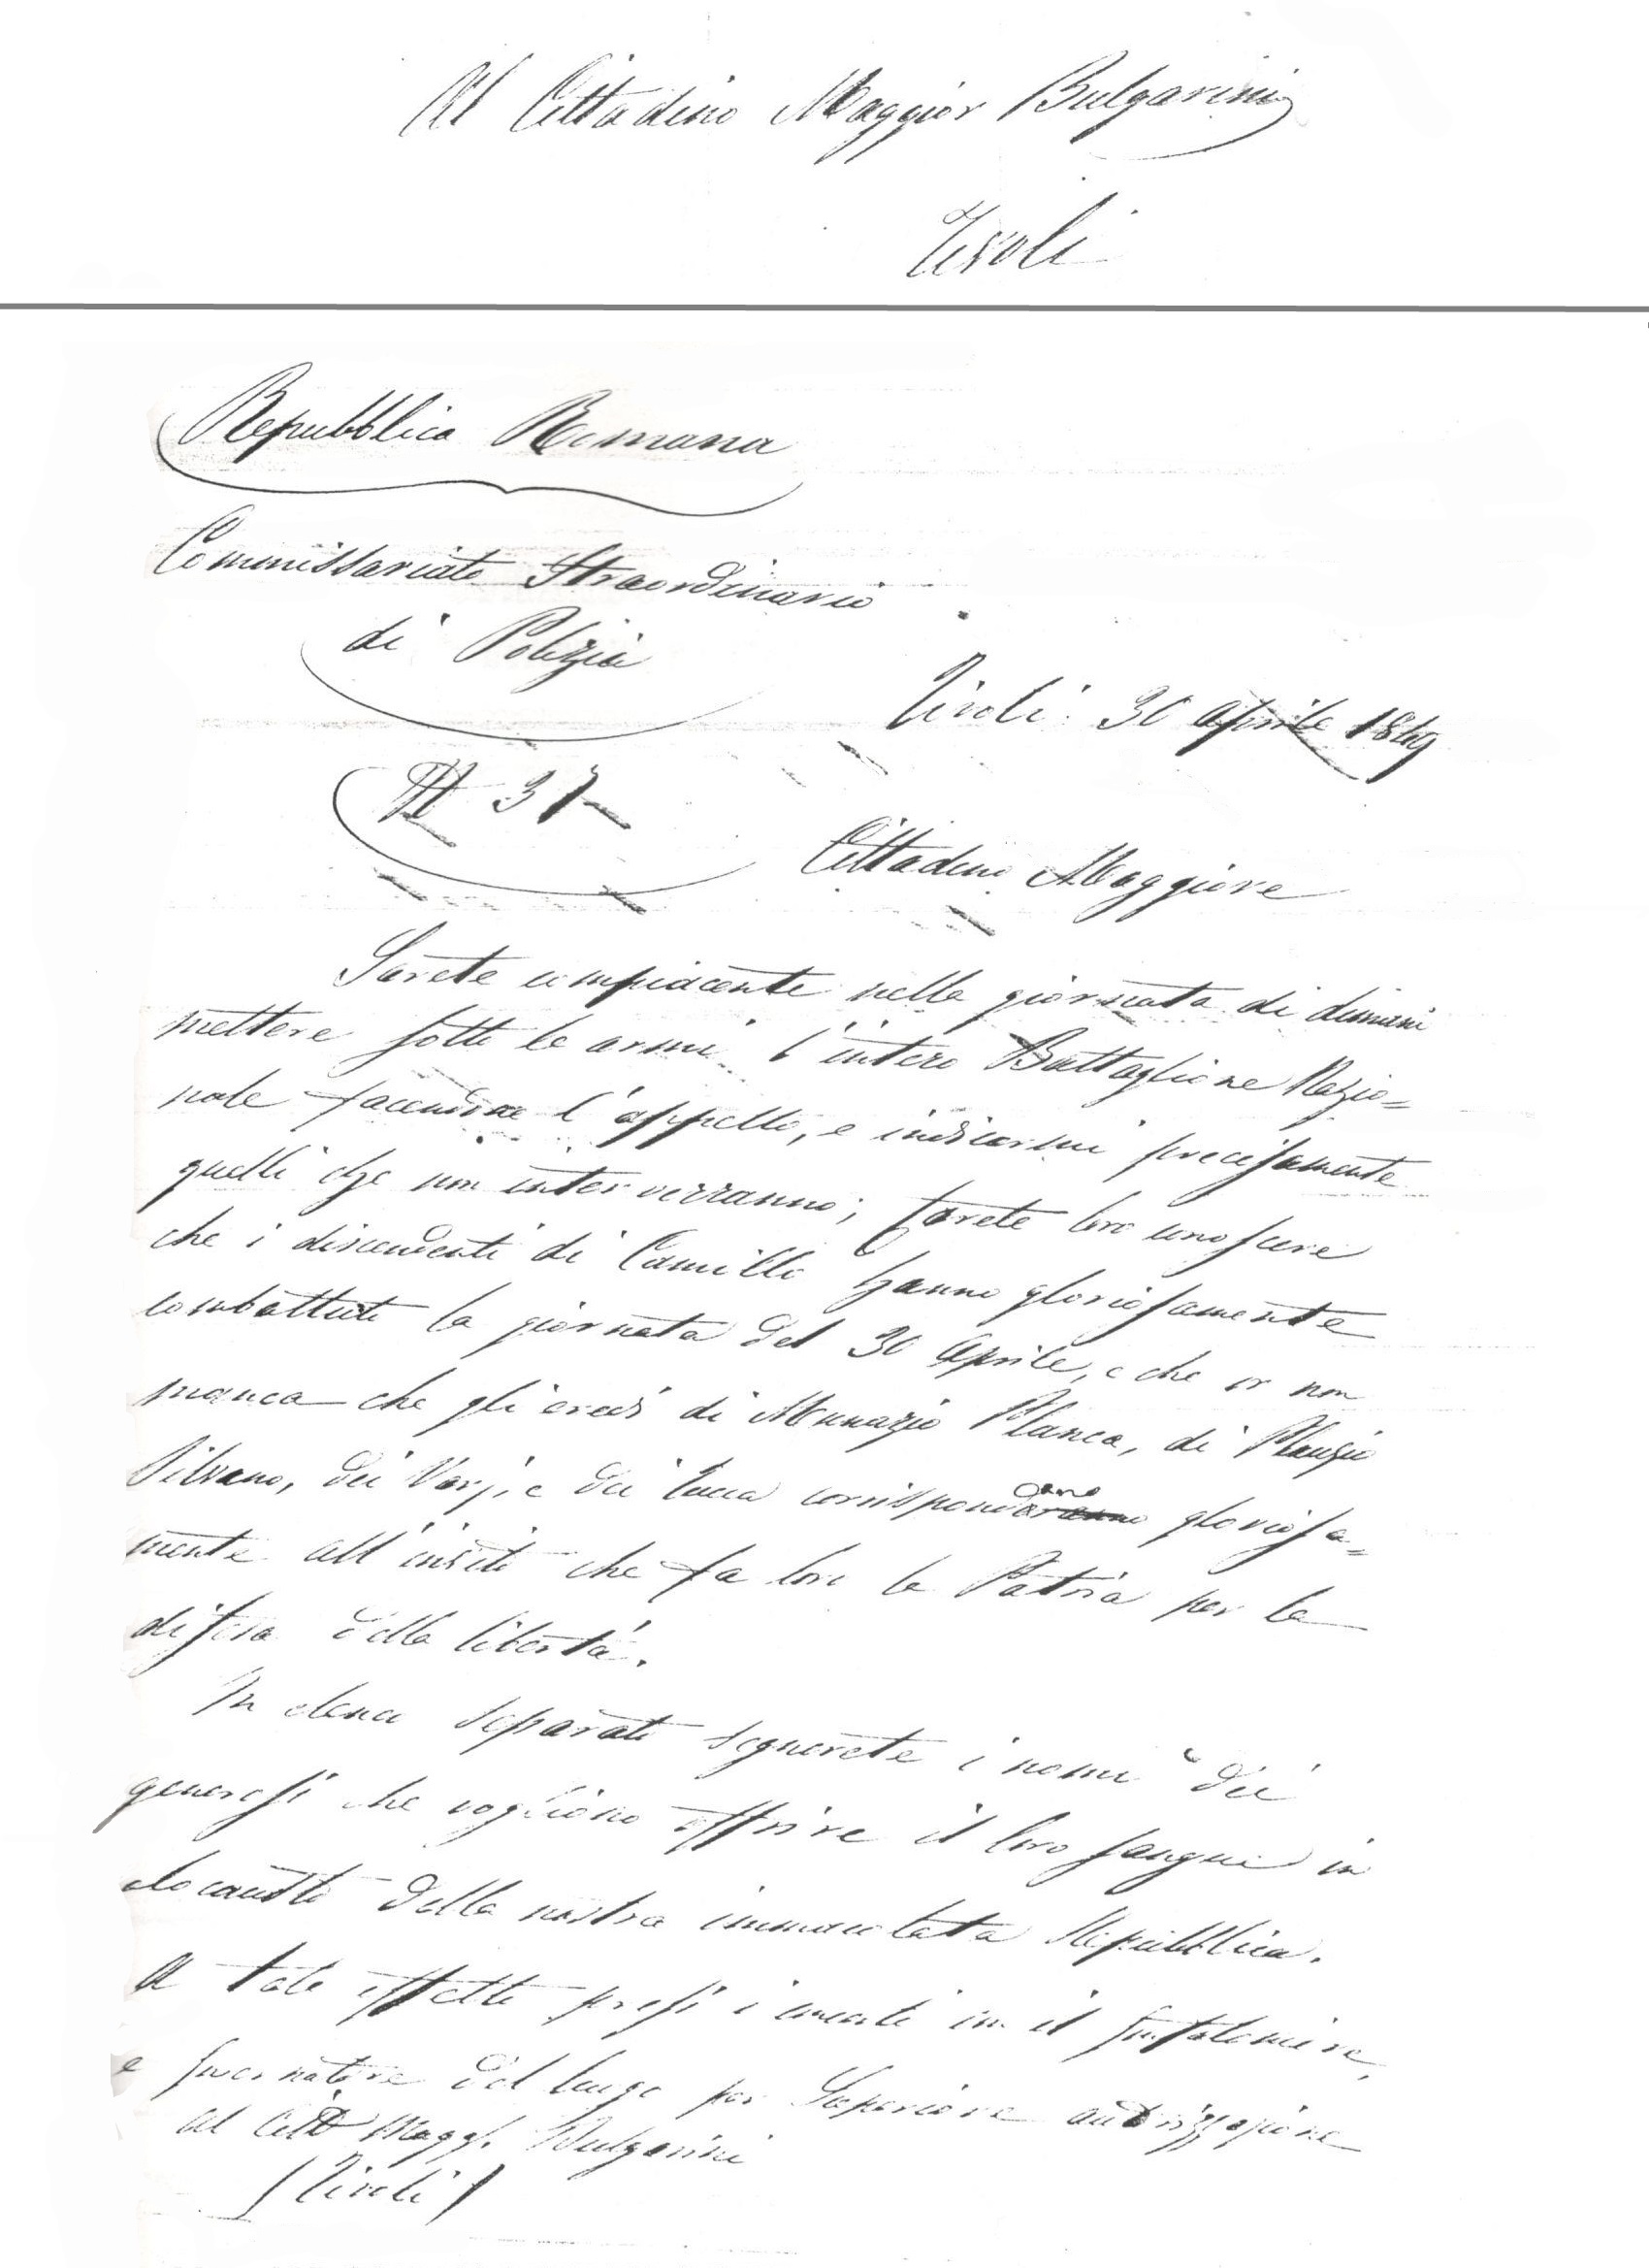 Al Cittadino Maggior Bulgarini
Tivoli
Repubblica Romana
Commissariato Straordinario
di Polizia
Tivoli 30 aprile 1849
N 37
Cittadino Maggiore
Sarete compiacente nella giornata di dimani
mettere sotto le armi l'intero Battaglione Nazio=
nale facendone l'appello, e indicarmi precisamente
quelli che non interverranno; farete loro conoscere
che i discendenti di Camillo hanno gloriosamente
combattuto la giornata del 30 Aprile, e che or non
manca che gli eredi di Munazio Planca, di Plauzio
Silvano, dei Varj, e dei Cocca corrispondano gloriosa=
mente all'invito che fa loro la Patria per la
difesa della libertà.
In elenco separato segnerete i nomi dei
generosi che vogliono offrire il loro sangue in
olocausto della nostra immacolata Repubblica.
A tale effetto presi i concerti con il Gonfaloniere,
e Governatore del luogo per Superiore autorizzazione
Al Citto Magg. Bulgarini
(Tivoli)